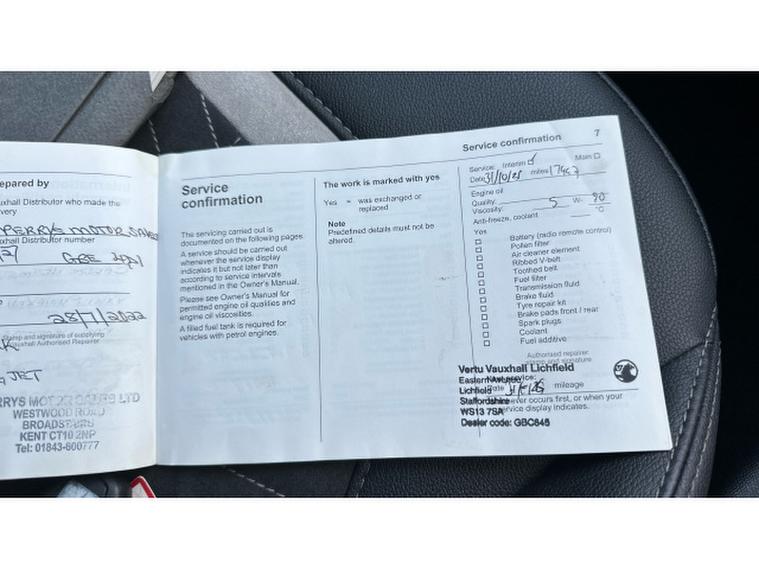 epared by
uxhall Distributor who made the
very
PERRYS MOTOR SALES
uxhall Distributor number
GBE
25/7/2022
Stamp and signature of supplying
Vauxhall Authorised Repairer
JET
RRYS MOTOR SALES LTD
WESTWOOD ROAD
BROADSTAIRS
KENT CT10 2NP
Tel: 01843-600777
Service
confirmation
The servicing carried out is
documented on the following pages.
A service should be carried
whenever the service display
indicates it but not later than
according to service intervals
mentioned in the Owner's Manual.
Please see Owner's Manual for
permitted engine oil qualities and
engine oil viscosities.
A filled fuel tank is required for
vehicles with petrol engines.
The work is marked with yes
Yes = was exchanged or
replaced
Note
Predefined details must not be
altered.
Service confirmation 7
Service: Interim Main
Date 31/10/25 miles
Engine oil
Quality:
Viscosity: 5 W-
Anti-freeze, coolant °C
Yes
Battery (radio remote control)
Pollen filter
Air cleaner element
Ribbed V-belt
Toothed belt
Fuel filter
Transmission fluid
Brake fluid
Tyre repair kit
Brake pads front / rear
Spark plugs
Coolant
Fuel additive
Authorised repairer
stamp and signature
Vertu Vauxhall Lichfield
Eastern Avenue
service:
Lichfield
Date mileage
Staffordshire
ever occurs first, or when your
WS13 7SA
service display indicates.
Dealer code: GBC845